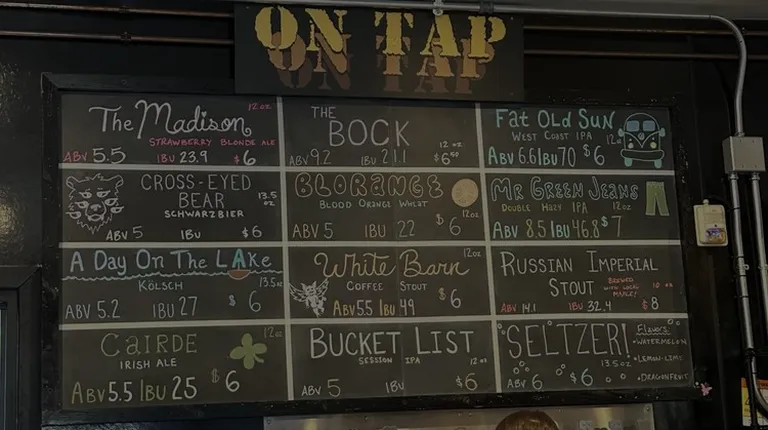 ON TAP
The Madison
12oz
STRAWBERRY BLONDE ALE
ABV 5.5 IBU 23.9 $6
THE
BOCK
12oz
ABV 9.2 IBU 21.1 $6.50
FAT OLD SUN
WEST COAST IPA 12oz
ABV 6.6 IBU 70 $6
CROSS-EYED
BEAR
13.5oz
SCHWARZBIER
ABV 5 IBU $6
BLORANGE
BLOOD ORANGE WHEAT
12oz
ABV 5 IBU 22 $6
MR GREEN JEANS
DOUBLE HAZY IPA 12oz
ABV 8.5 IBU 46.8 $7
A DAY ON THE LAKE
KÖLSCH 13.5oz
ABV 5.2 IBU 27 $6
White Barn
12oz
COFFEE STOUT
ABV 5.5 IBU 49 $6
RUSSIAN IMPERIAL
STOUT
BREWED
WITH LOCAL
MAPLE!
10oz
ABV 14.1 IBU 32.4 $8
CAIRDE
12oz
IRISH ALE
ABV 5.5 IBU 25 $6
BUCKET LIST
SESSION IPA 12oz
ABV 5 IBU $6
SELTZER!
Flavors:
•WATERMELON
•LEMON-LIME
•DRAGONFRUIT
13.5oz
ABV 6 $6